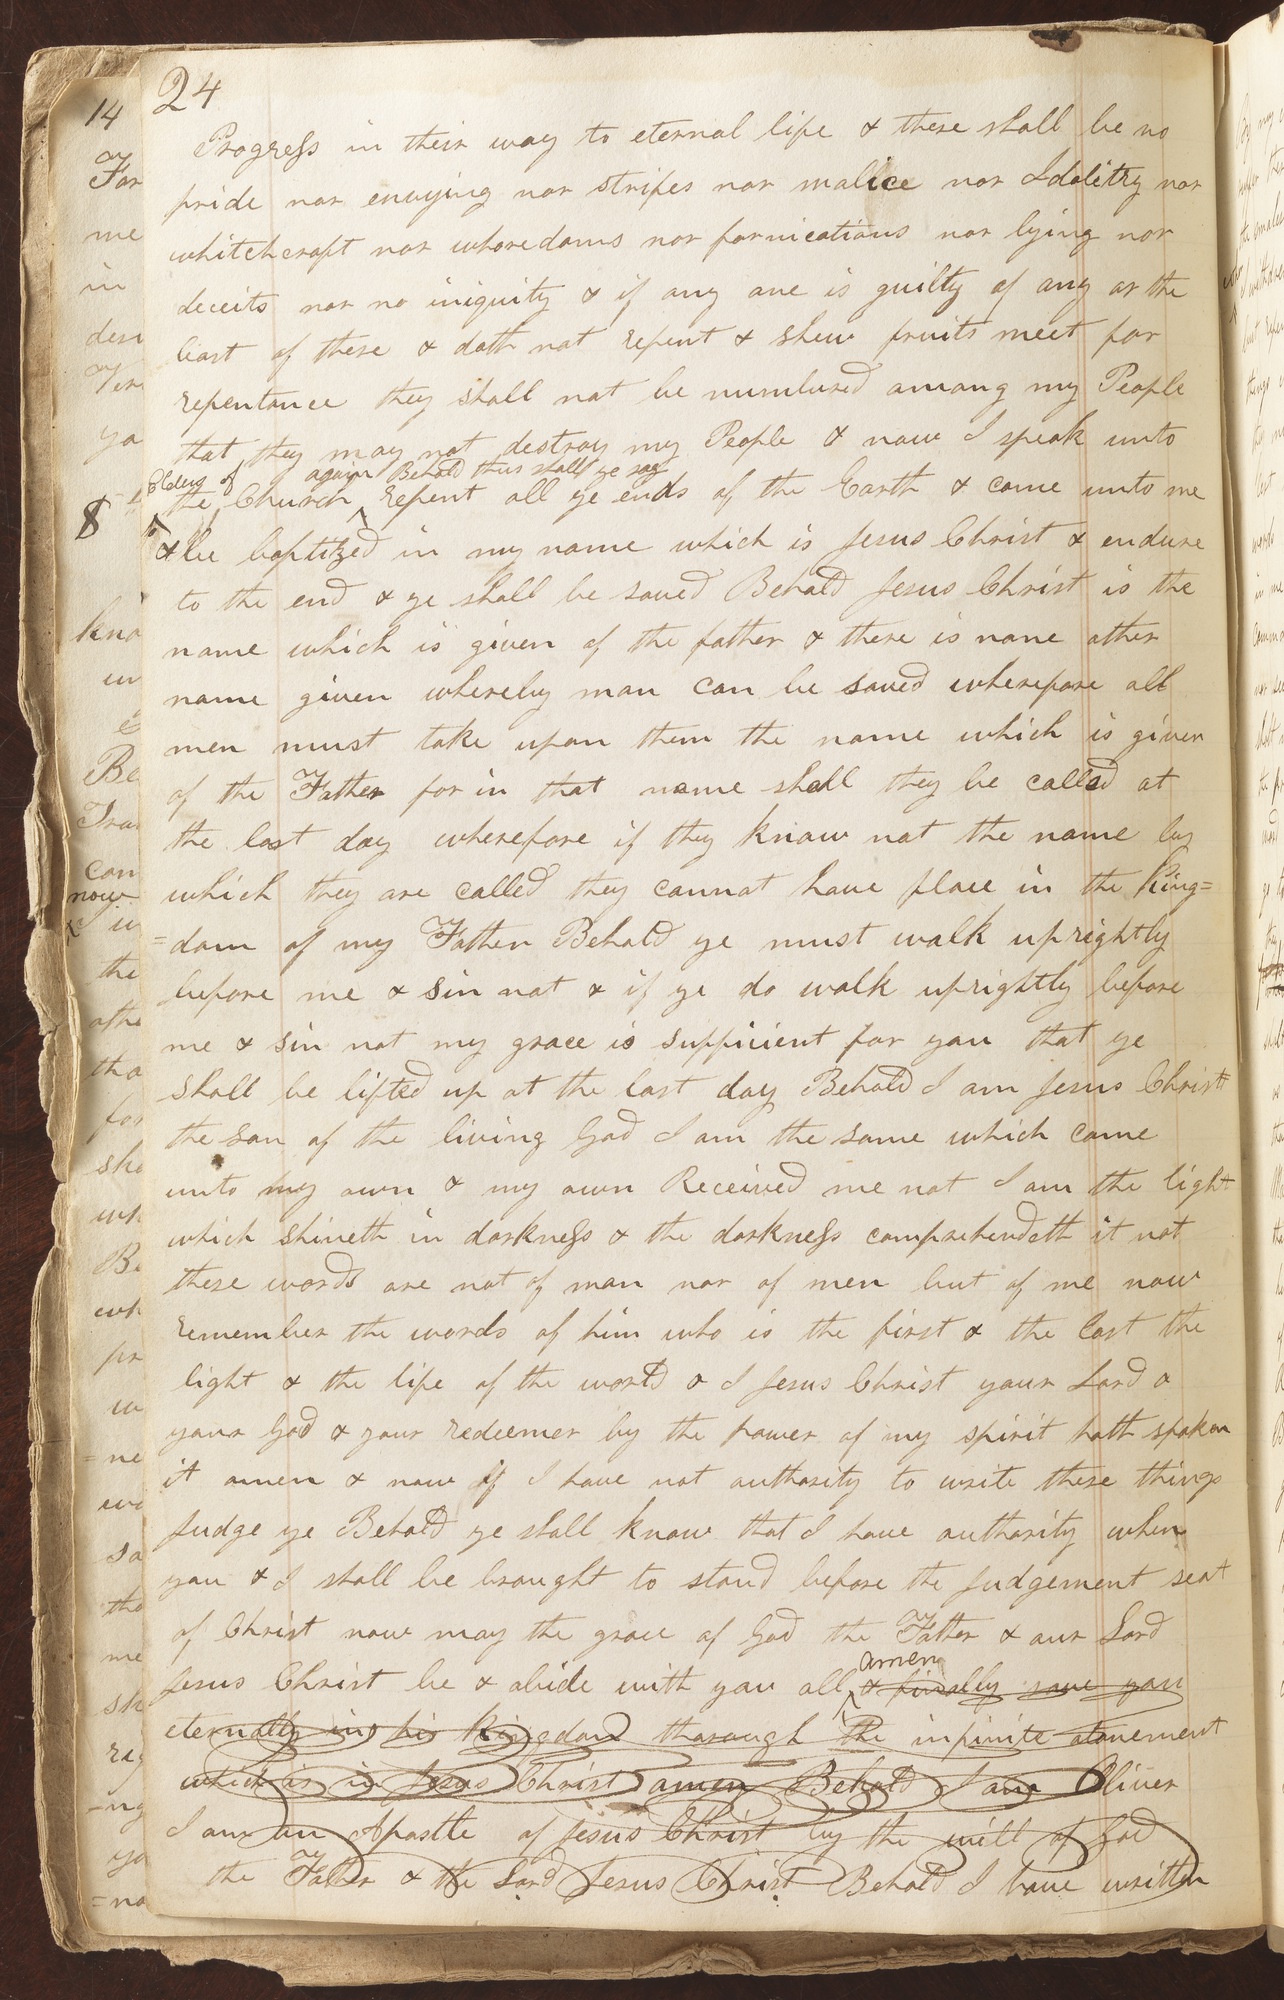 24
Progress in their way to eternal life & there shall be no
pride nor envying nor stripes nor malice nor Idolitry nor
whitchcraft nor whoredoms nor fornications nor lying nor
deceits nor no iniquity & if any one is guilty of any or the
least of these & doth not repent & shew fruits meet for
repentance they shall not be numbured among my People
that they may not destroy my People & now I speak unto
Elders of again Behold thus shall ye say
the Church repent all ye ends of the Earth & come unto me
& be baptized in my name which is Jesus Christ & endure
to the end & ye shall be saved Behold Jesus Christ is the
name which is given of the father & there is none other
name given whereby man can be saved wherefore all
men must take upon them the name which is given
of the Father for in that name shall they be called at
the last day wherefore if they know not the name by
which they are called they cannot have place in the King=
=dom of my Father Behold ye must walk uprightly
before me & sin not & if ye do walk uprightly before
me & sin not my grace is sufficient for you that ye
shall be lifted up at the last day Behold I am Jesus Christ
the son of the living God I am the same which came
unto my own & my own Received me not I am the light
which shineth in darkness & the darkness comprehendeth it not
these words are not of man nor of men but of me now
remember the words of him who is the first & the last the
light & the life of the world & I Jesus Christ your Lord &
your God & your redeemer by the power of my spirit hath spoken
it amen & now if I have not authority to write these things
Judge ye Behold ye shall know that I have authority when
you & I shall be brought to stand before the Judgement seat
of Christ now may the grace of God the Father & our Lord
amen
Jesus Christ be & abide with you all & finally save you
eternally in his Kingdom thorough the infinite atonement
which is in Jesus Christ amen Behold I am Oliver
I am an Apostle of Jesus Christ by the will of God
the Father & the Lord Jesus Christ Behold I have written
14
For
me
in
8
kno
Be
can
now
the
tho
for